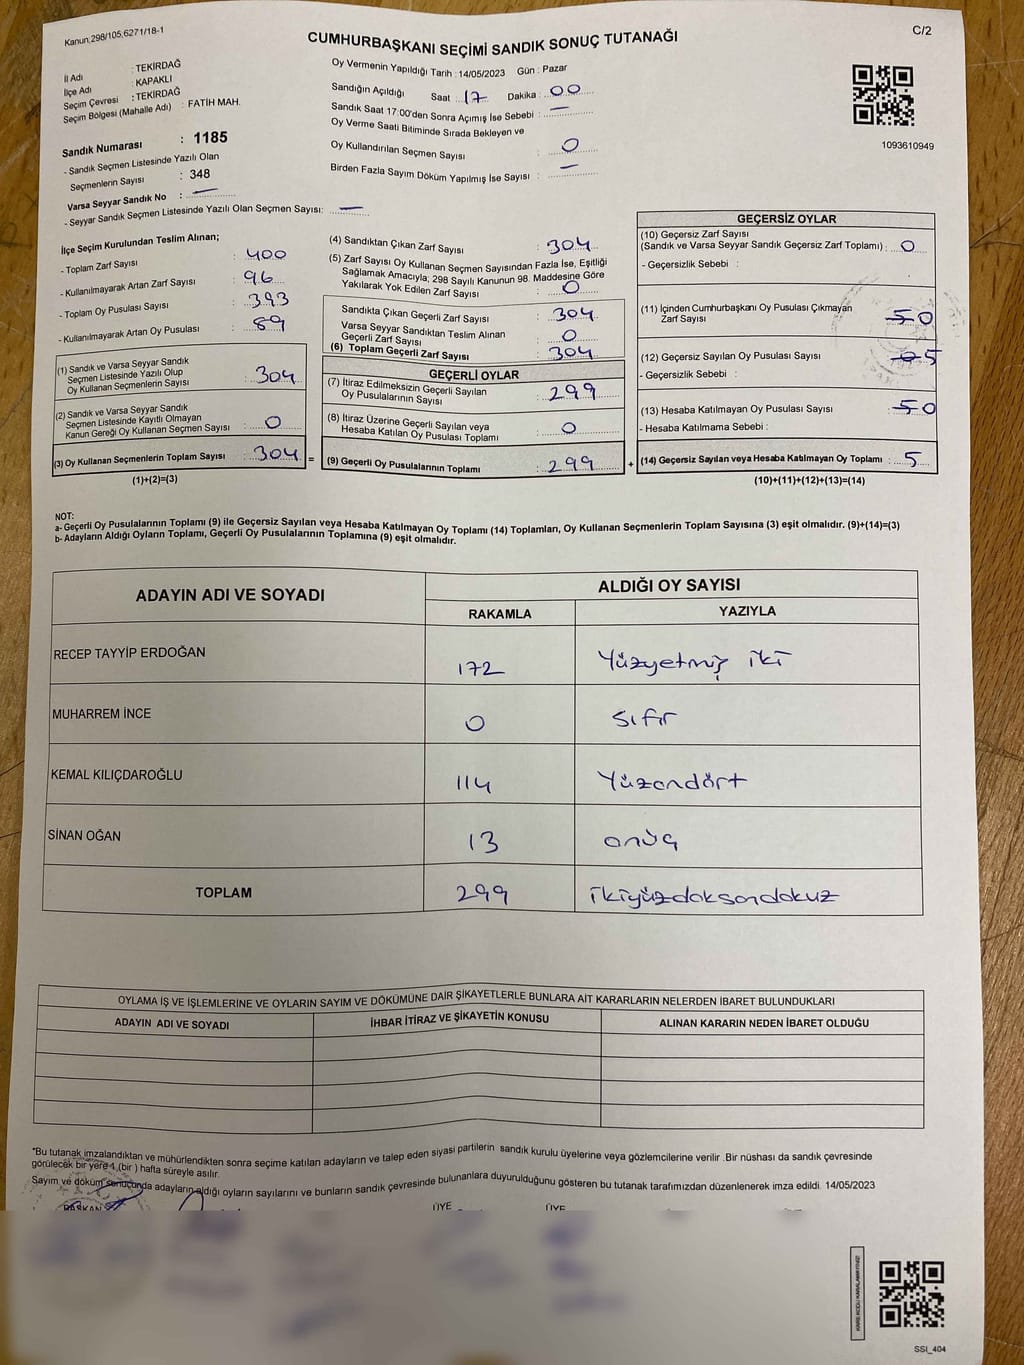 Kanun:298/105,6271/18-1
C/2
CUMHURBAŞKANI SEÇİMİ SANDIK SONUÇ TUTANAĞI
İl Adı : TEKİRDAĞ
İlçe Adı : KAPAKLI
Seçim Çevresi : TEKİRDAĞ
Seçim Bölgesi (Mahalle Adı) : FATİH MAH.
Sandık Numarası : 1185
- Sandık Seçmen Listesinde Yazılı Olan
Seçmenlerin Sayısı : 348
Varsa Seyyar Sandık No : —
- Seyyar Sandık Seçmen Listesinde Yazılı Olan Seçmen Sayısı: —
Oy Vermenin Yapıldığı Tarih : 14/05/2023 Gün : Pazar
Sandığın Açıldığı Saat : 17 Dakika : 00
Sandık Saat 17:00'den Sonra Açımış İse Sebebi : —
Oy Verme Saati Bitiminde Sırada Bekleyen ve
Oy Kullandırılan Seçmen Sayısı : 0
Birden Fazla Sayım Döküm Yapılmış İse Sayısı : —
1093610949
İlçe Seçim Kurulundan Teslim Alınan;
- Toplam Zarf Sayısı : 400
- Kullanılmayarak Artan Zarf Sayısı : 96
- Toplam Oy Pusulası Sayısı : 393
- Kullanılmayarak Artan Oy Pusulası : 89
(1) Sandık ve Varsa Seyyar Sandık
Seçmen Listesinde Yazılı Olup
Oy Kullanan Seçmenlerin Sayısı : 304
(2) Sandık ve Varsa Seyyar Sandık
Seçmen Listesinde Kayıtlı Olmayan
Kanun Gereği Oy Kullanan Seçmen Sayısı : 0
(3) Oy Kullanan Seçmenlerin Toplam Sayısı : 304 =
(1)+(2)=(3)
(4) Sandıktan Çıkan Zarf Sayısı : 304
(5) Zarf Sayısı Oy Kullanan Seçmen Sayısından Fazla İse, Eşitliği
Sağlamak Amacıyla; 298 Sayılı Kanunun 98. Maddesine Göre
Yakılarak Yok Edilen Zarf Sayısı : 0
Sandıkta Çıkan Geçerli Zarf Sayısı : 304
Varsa Seyyar Sandıktan Teslim Alınan
Geçerli Zarf Sayısı : 0
(6) Toplam Geçerli Zarf Sayısı : 304
GEÇERLİ OYLAR
(7) İtiraz Edilmeksizin Geçerli Sayılan
Oy Pusulalarının Sayısı : 299
(8) İtiraz Üzerine Geçerli Sayılan veya
Hesaba Katılan Oy Pusulası Toplamı : 0
(9) Geçerli Oy Pusulalarının Toplamı : 299 +
GEÇERSİZ OYLAR
(10) Geçersiz Zarf Sayısı
(Sandık ve Varsa Seyyar Sandık Geçersiz Zarf Toplamı) : 0
- Geçersizlik Sebebi :
(11) İçinden Cumhurbaşkanı Oy Pusulası Çıkmayan
Zarf Sayısı : 5 0
(12) Geçersiz Sayılan Oy Pusulası Sayısı : 0 5
- Geçersizlik Sebebi :
(13) Hesaba Katılmayan Oy Pusulası Sayısı : 5 0
- Hesaba Katılmama Sebebi :
(14) Geçersiz Sayılan veya Hesaba Katılmayan Oy Toplamı : 5
(10)+(11)+(12)+(13)=(14)
NOT:
a- Geçerli Oy Pusulalarının Toplamı (9) ile Geçersiz Sayılan veya Hesaba Katılmayan Oy Toplamı (14) Toplamları, Oy Kullanan Seçmenlerin Toplam Sayısına (3) eşit olmalıdır. (9)+(14)=(3)
b- Adayların Aldığı Oyların Toplamı, Geçerli Oy Pusulalarının Toplamına (9) eşit olmalıdır.
ADAYIN ADI VE SOYADI
ALDIĞI OY SAYISI
RAKAMLA YAZIYLA
RECEP TAYYİP ERDOĞAN 172 Yüzyetmiş iki
MUHARREM İNCE 0 Sıfır
KEMAL KILIÇDAROĞLU 114 Yüzondört
SİNAN OĞAN 13 onüç
TOPLAM 299 ikiyüzdoksandokuz
OYLAMA İŞ VE İŞLEMLERİNE VE OYLARIN SAYIM VE DÖKÜMÜNE DAİR ŞİKAYETLERLE BUNLARA AİT KARARLARIN NELERDEN İBARET BULUNDUKLARI
ADAYIN ADI VE SOYADI İHBAR İTİRAZ VE ŞİKAYETİN KONUSU ALINAN KARARIN NEDEN İBARET OLDUĞU
*Bu tutanak imzalandıktan ve mühürlendikten sonra seçime katılan adayların ve talep eden siyasi partilerin sandık kurulu üyelerine veya gözlemcilerine verilir .Bir nüshası da sandık çevresinde
görülecek bir yere 1 (bir ) hafta süreyle asılır.
Sayım ve döküm sonucunda adayların aldığı oyların sayılarını ve bunların sandık çevresinde bulunanlara duyurulduğunu gösteren bu tutanak tarafımızdan düzenlenerek imza edildi. 14/05/2023
BAŞKAN ÜYE ÜYE
SSI_404